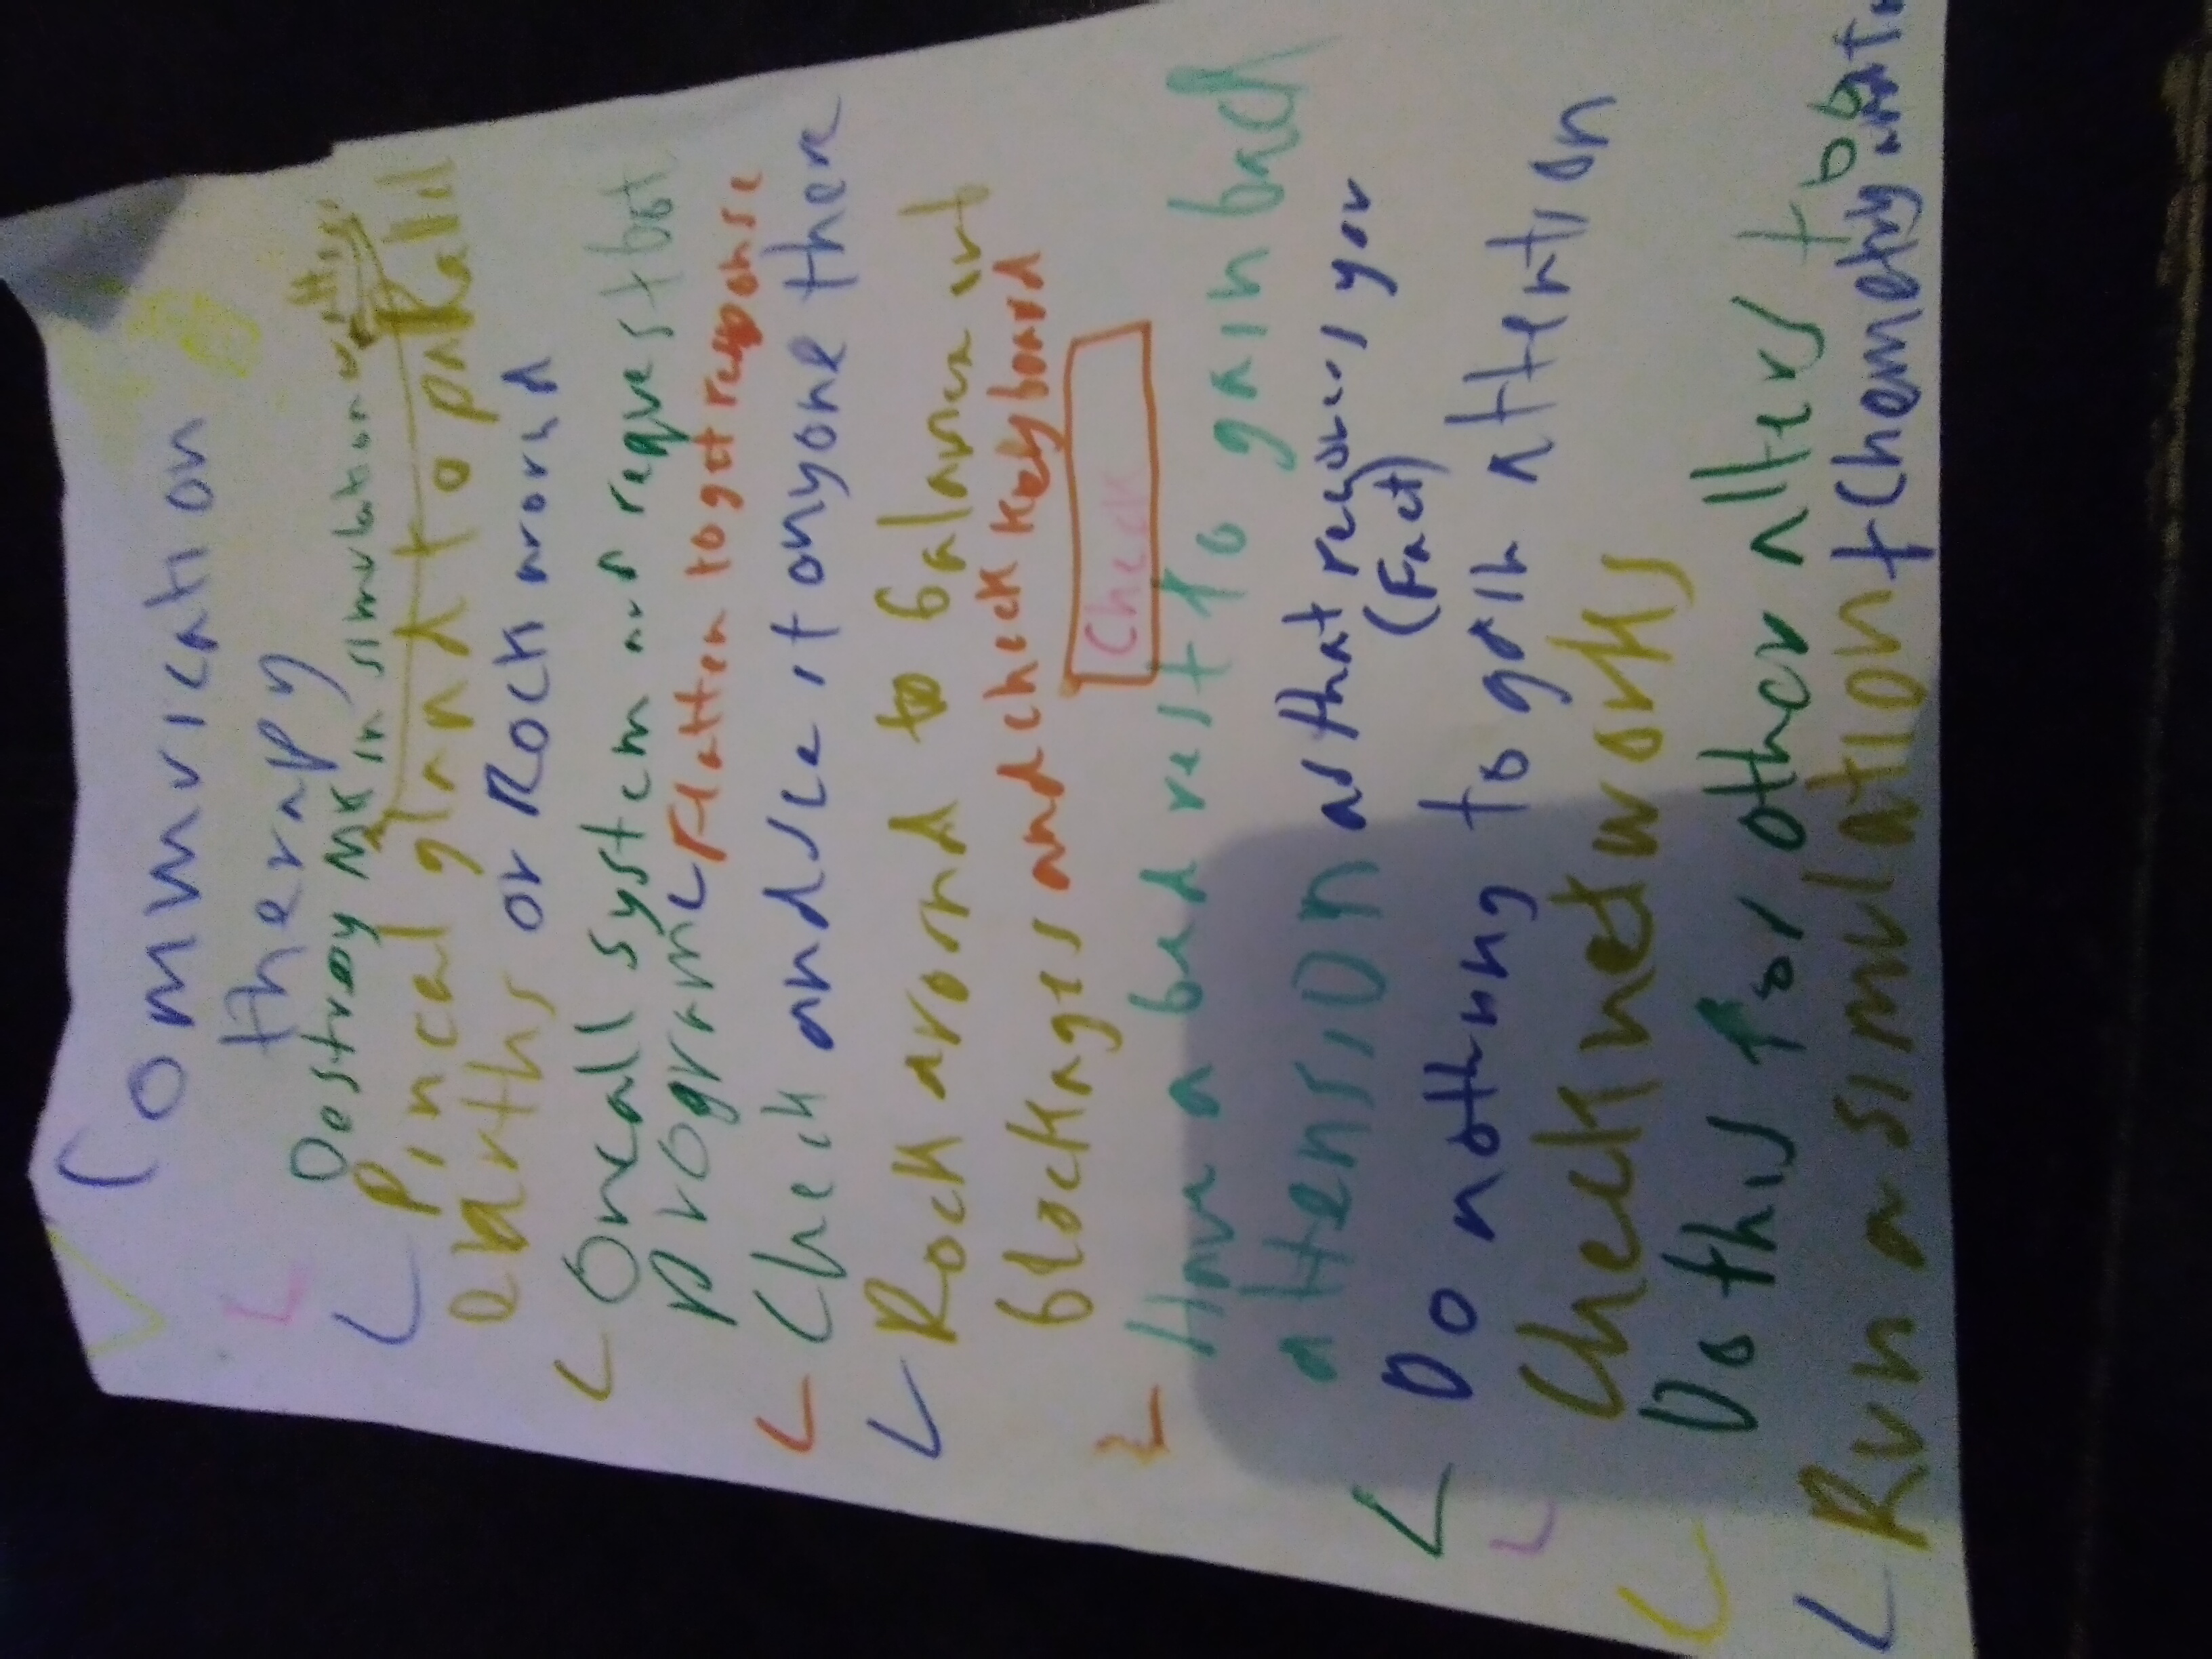 Communication
therapy
Destroy me in simulation
Pineal gland to parallel
earths or Rock around
Oncall system and request bot
programe Flatten to get response
Check and see if anyone there
Rock arond to balance it
blockages and check keyboard
Check
Have a bed rest to gain back
attension as that recovers you
(Fact)
Do nothing to gain attention
Check networks
Do this for other alters too
Run a simulation